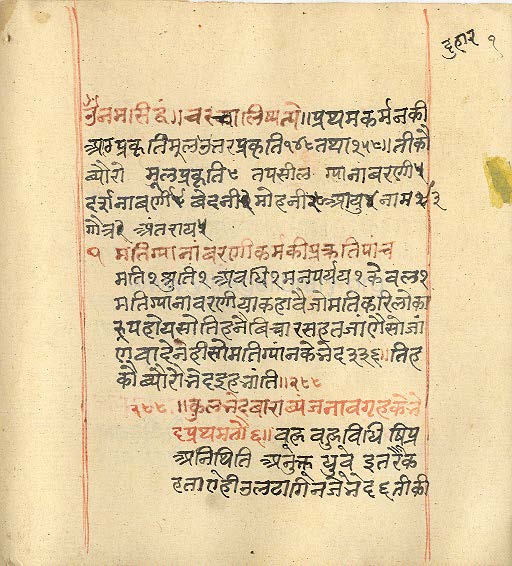 दुहार १
ॐ नमः सिद्धं॥ चरचा लिष्यते॥ प्रथम कर्मन की
आठ प्रकृति मूल उत्तर प्रकृति १४८ तथा १५८॥ तीकौ
ब्यौरो मूल प्रकृति ८ तपसील ग्यानाबरणी ५
दर्शनाबर्णी ९ बेदनी २ मोहनी २८ आयु ४ नाम
गौत्र २ अंतराय ५
१ मतिग्यानांबरणी कर्म की प्रकृति पांच
मति १ श्रुति १ अवधि १ मनपर्यय १ केवल १
मतिग्यानावरणी या कहावै जो मति करि लोका
रूप होय सो तिहनै विचार सहत जाणै सो जां
ण वा दे नही सो मतिग्यान के भेद ३३६॥ तिह
कौ ब्यौरो भेद इह भांति॥ २८८
२८८॥ कुल भेद बारा ब्यंजनावग्रह के भे
प्रथम तौ ६॥ बहु बहुविधि षिप्र
अनिश्रिति अनुक्त ध्रुव इतरैक
ह ता ए ही उलटा गिनजे भेद ६ ती की